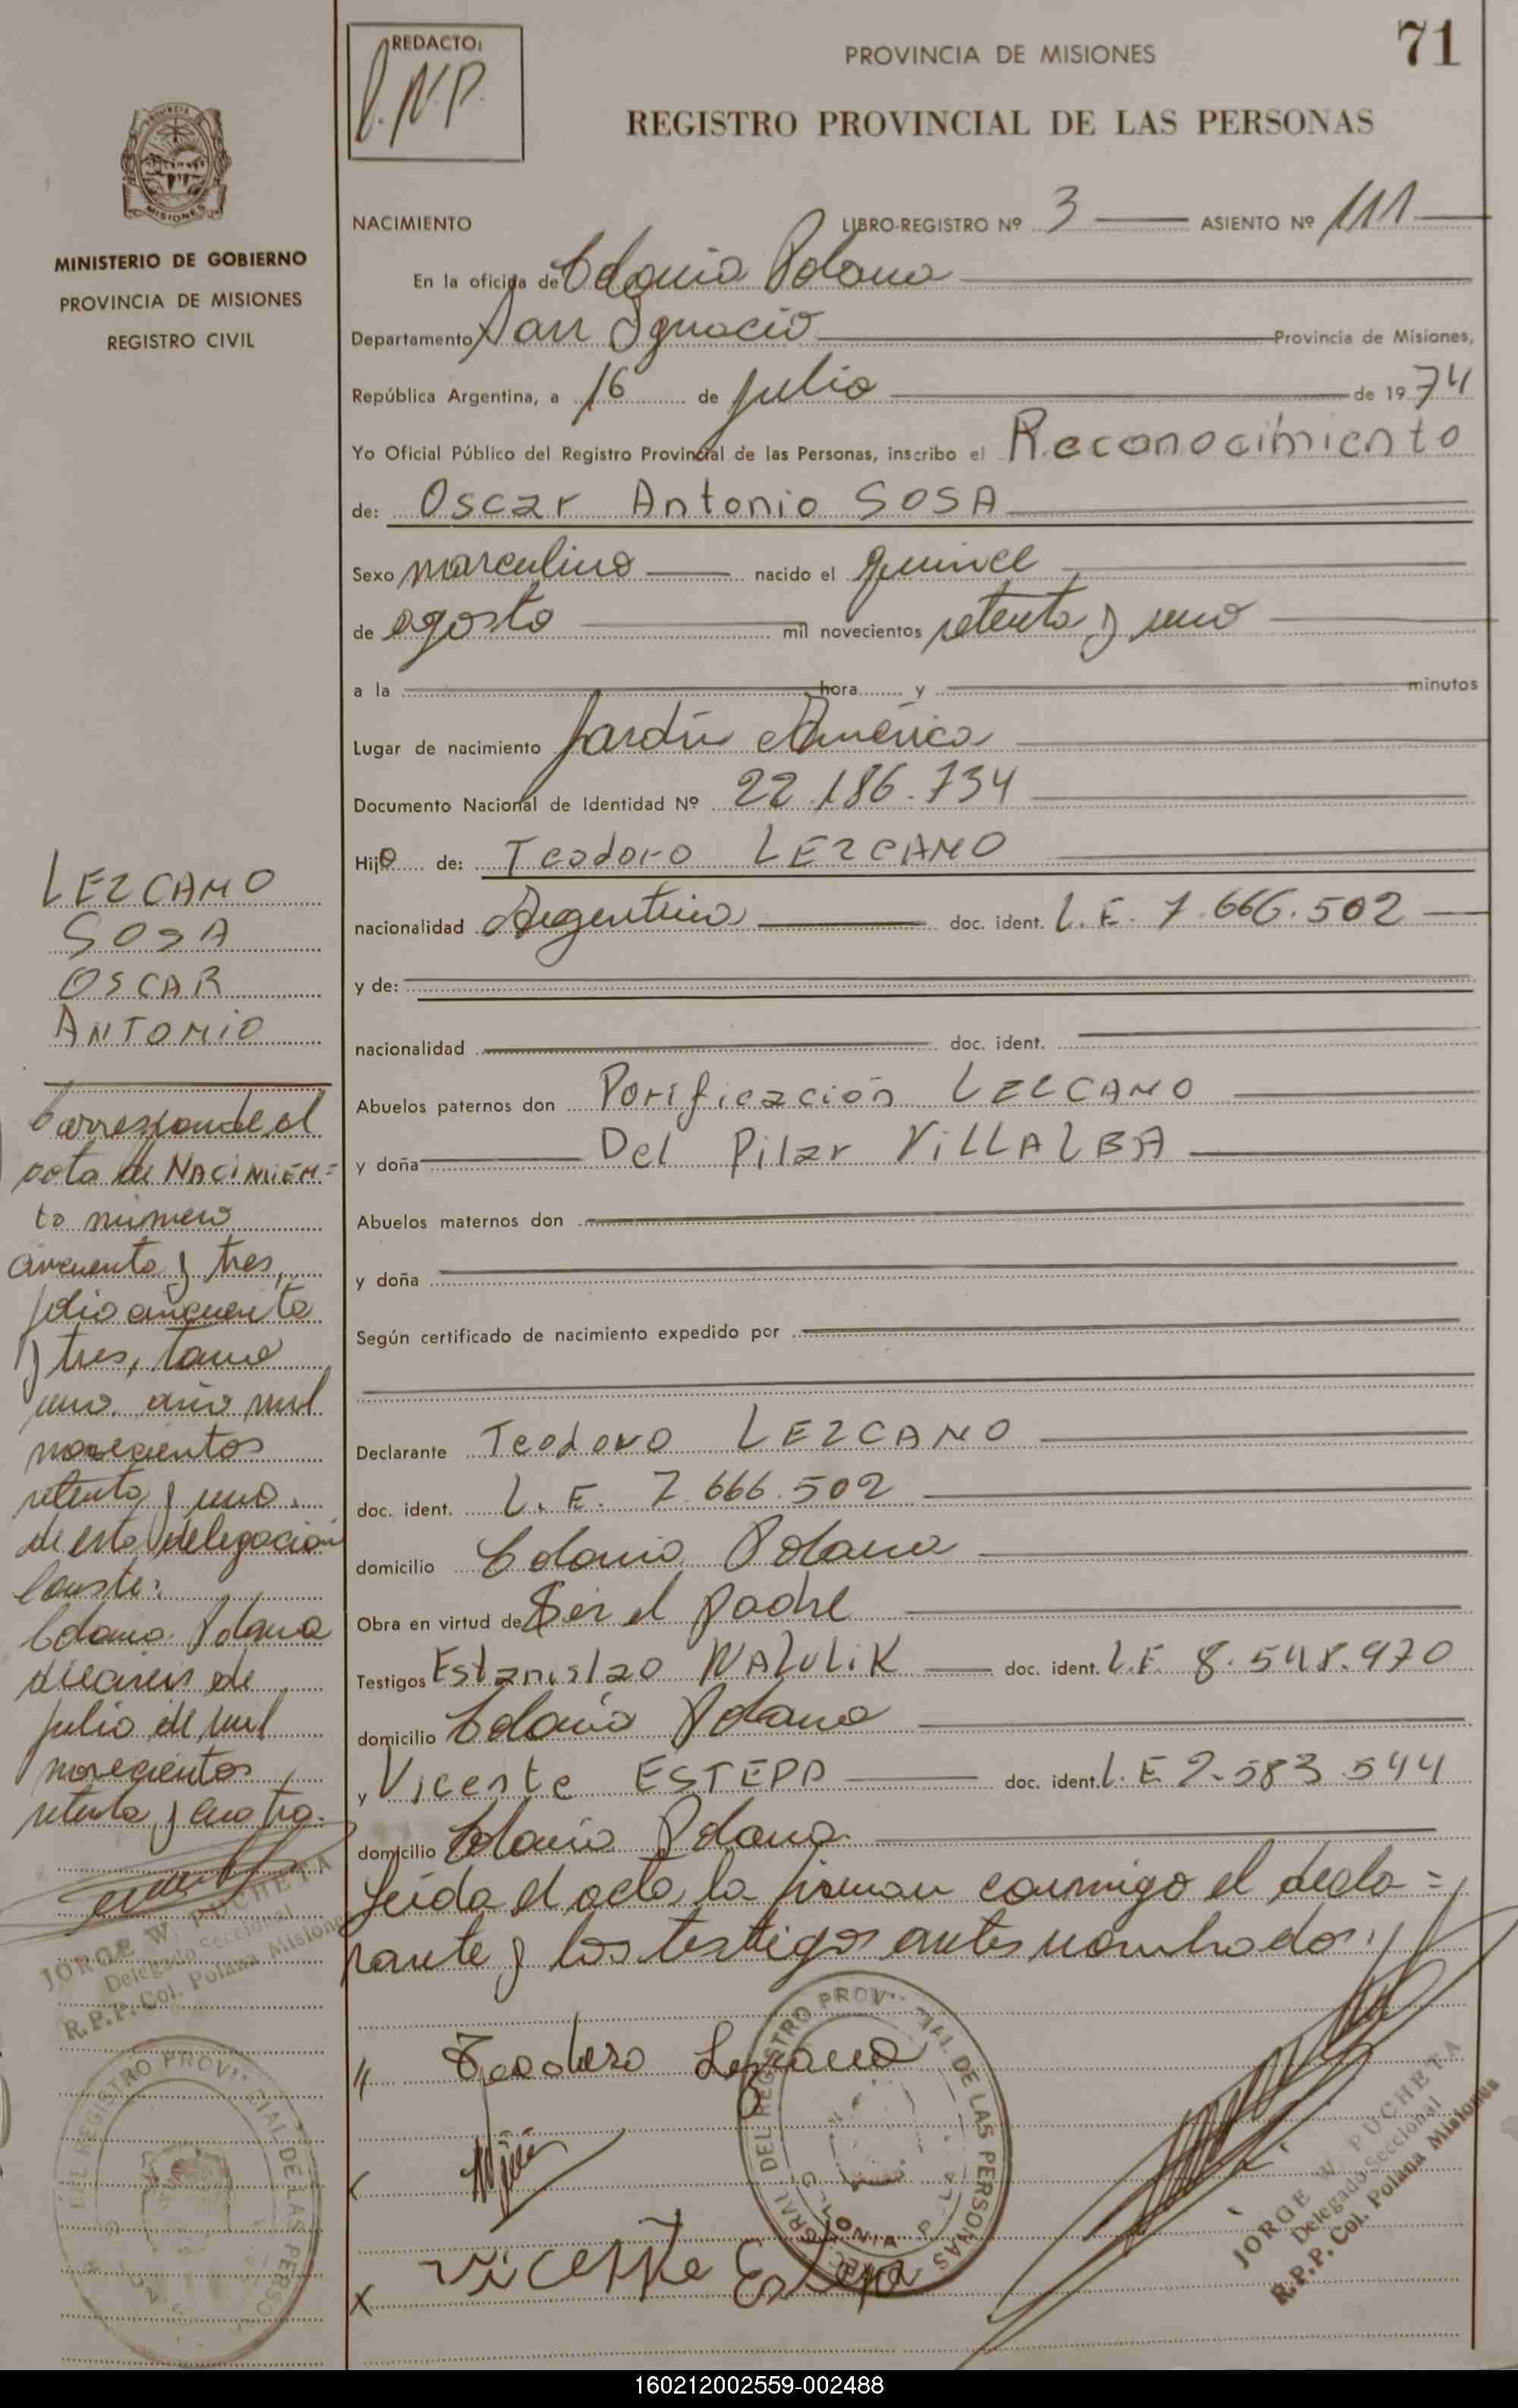 REDACTO:
PROVINCIA DE MISIONES
71
REGISTRO PROVINCIAL DE LAS PERSONAS
MISIONES
MINISTERIO DE GOBIERNO
PROVINCIA DE MISIONES
REGISTRO CIVIL
NACIMIENTO LIBRO-REGISTRO Nº 3 ASIENTO Nº 111
En la oficina de Colonia Polana
Departamento San Ignacio Provincia de Misiones,
República Argentina, a 16 de julio de 1974
Yo Oficial Público del Registro Provincial de las Personas, inscribo el Reconocimiento
de: Oscar Antonio SOSA
Sexo masculino nacido el quince
de agosto mil novecientos setenta y uno
a la hora y minutos
Lugar de nacimiento Jardín América
Documento Nacional de Identidad Nº 22.186.734
Hijo de: Teodoro LEZCANO
nacionalidad Argentina doc. ident. L.E. 7.666.502
y de:
nacionalidad doc. ident.
Abuelos paternos don Porificación LEZCANO
y doña Del Pilar VILLALBA
Abuelos maternos don
y doña
Según certificado de nacimiento expedido por
Declarante Teodoro LEZCANO
doc. ident. L.E. 7.666.502
domicilio Colonia Polana
Obra en virtud de Ser el padre
Testigos Estanislao doc. ident. L.E. 8.548.970
domicilio Colonia Polana
y Vicente ESTEPA doc. ident. L.E 2.583.544
domicilio Colonia Polana
Leída el acta, la firman conmigo el decla=
rante y los testigos antes nombrados.
Teodoro Lezcano
Vicente Estepa
JORGE W. PUCHETA
Delegado Seccional
R.P.P. Col. Polana Misiones
LEZCANO
SOSA
OSCAR
ANTONIO
Corresponde al
acta de NACIMIEN=
to número
cincuenta y tres,
folio cincuenta
y tres, tomo
uno, año mil
novecientos
setenta y uno.
de esta delegación
Conste:
Colonia Polana
dieciseis de
julio de mil
novecientos
setenta y cuatro.
JORGE W. PUCHETA
Delegado Seccional
R.P.P. Col. Polana Misiones
160212002559-002488